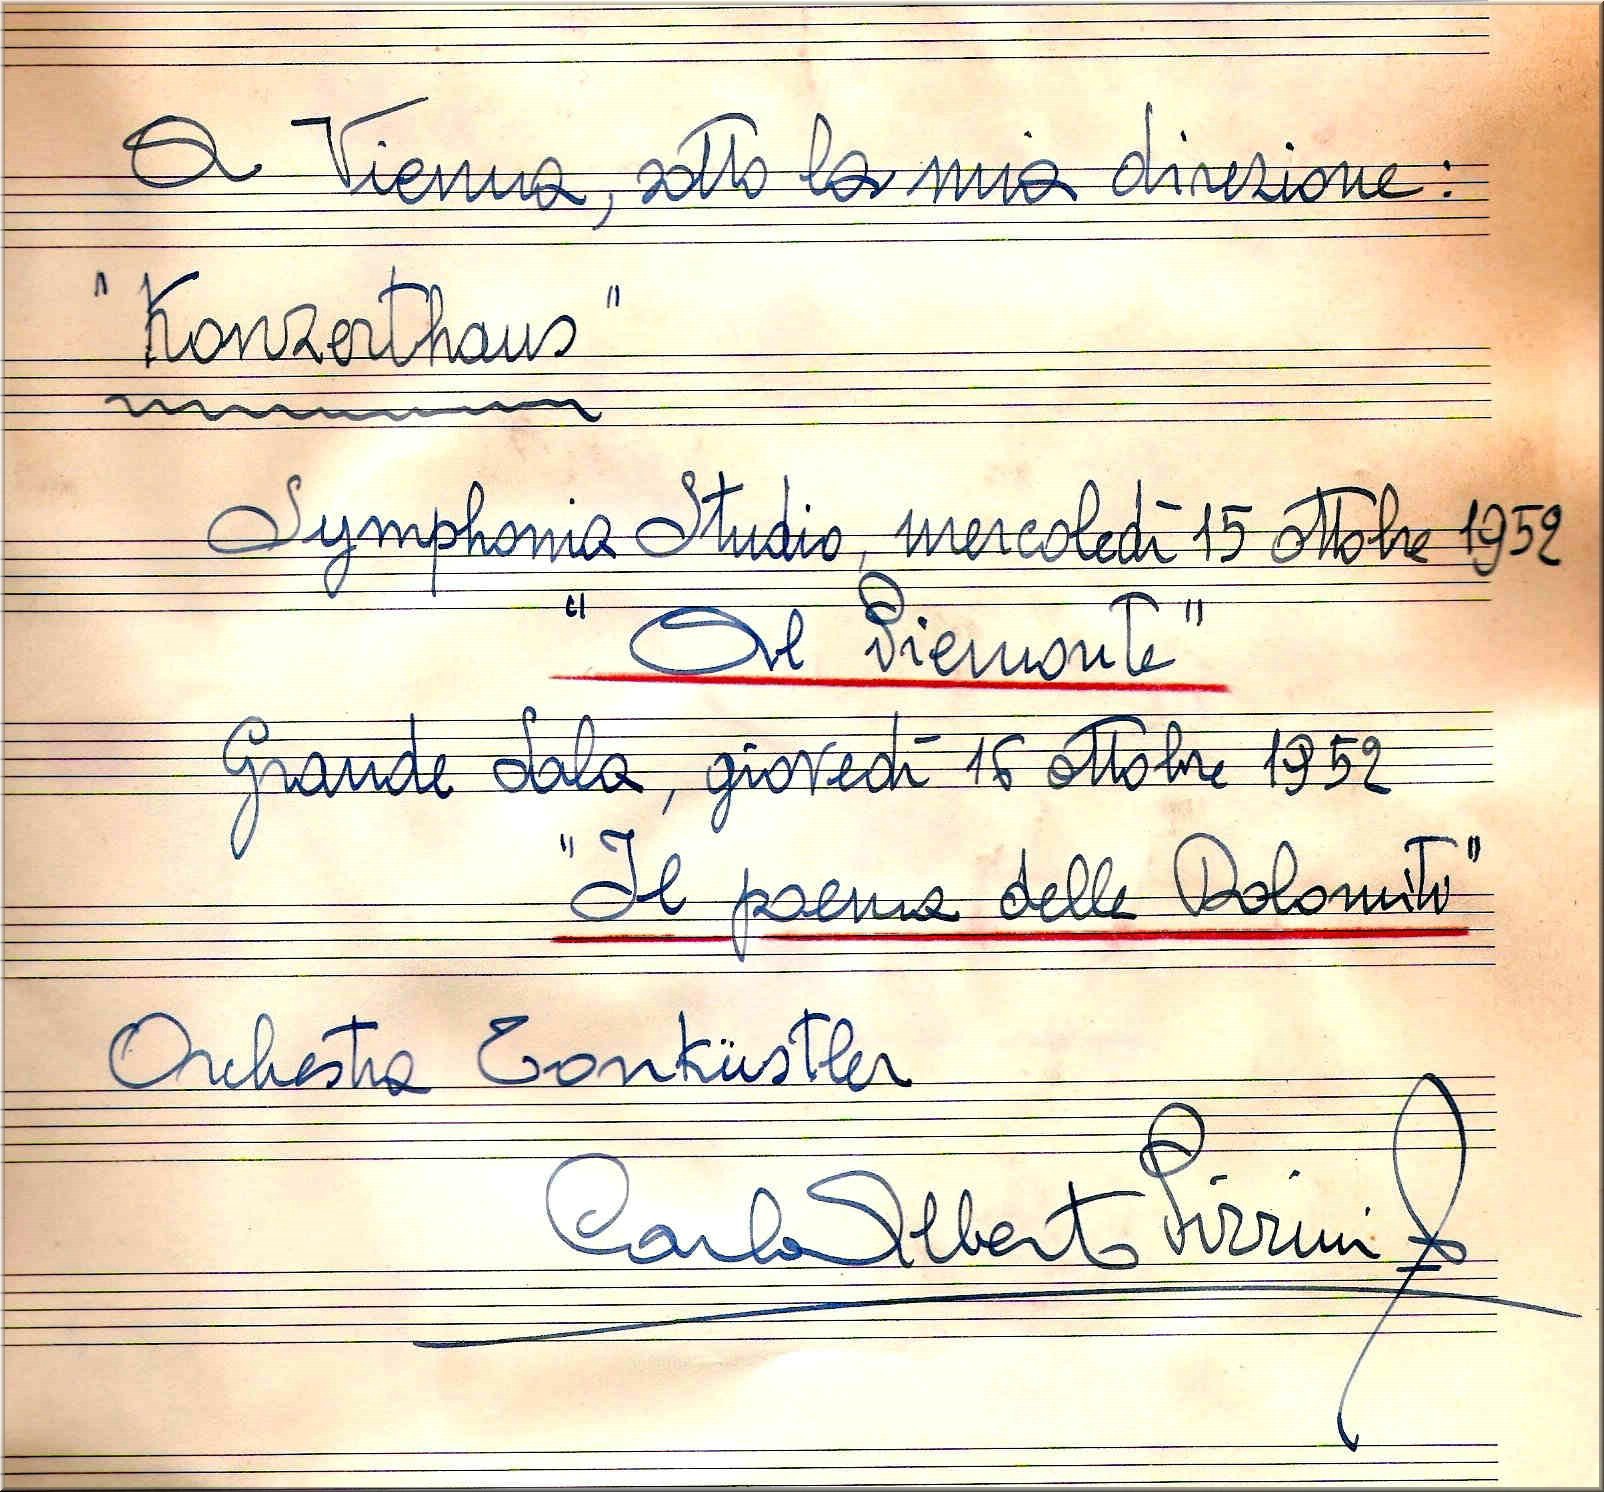 A Vienna, sotto la mia direzione:
"Konzerthaus"
Symphonia Studio, mercoledì 15 ottobre 1952
"Al Piemonte"
Grande Sala, giovedì 16 ottobre 1952
"Il poema delle Dolomiti"
Orchestra Tonküstler
Carlo Alberto Pizzini